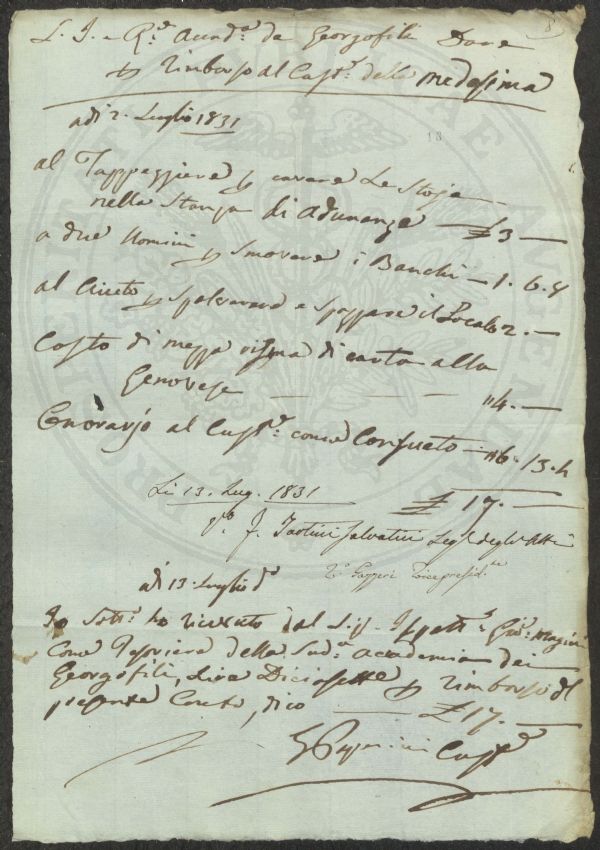 L. I. e R.e Accad.a de Georgofili Dare
p Rimborso al Cust.e della medesima
8
adi 2. Luglio 1831
13
al Tappezziere p cavare Le Stoje
nella Stanza di Adunanze £ 3 —
a due Uomini p Smovere i Banchi — 1. 6. 8
al Cincto p Spolverare e Spazzare il Locale 2. —
Costo di mezza risma di carta alla
Genovese — — — " 4. —
Onorario al Cust.e come Consueto — " 6. 13. 4
£ 17. —
Li 13. Lug. 1831
V.o F. Tartini Salvatici Seg. degli Atti
V.o Gazzeri Vice presid.te
a di 13. Luglio d.o
Io Sott.o ho ricevuto dal Sig. Ispett.e Magini
Come Tesoriere della Sud.a Accademia dei
Georgofili, Lire Diciasette p Rimborso del
presente Conto, dico — £ 17. —
Cust.e
PUBLICAE
PROSPERITATI
AUGENDAE